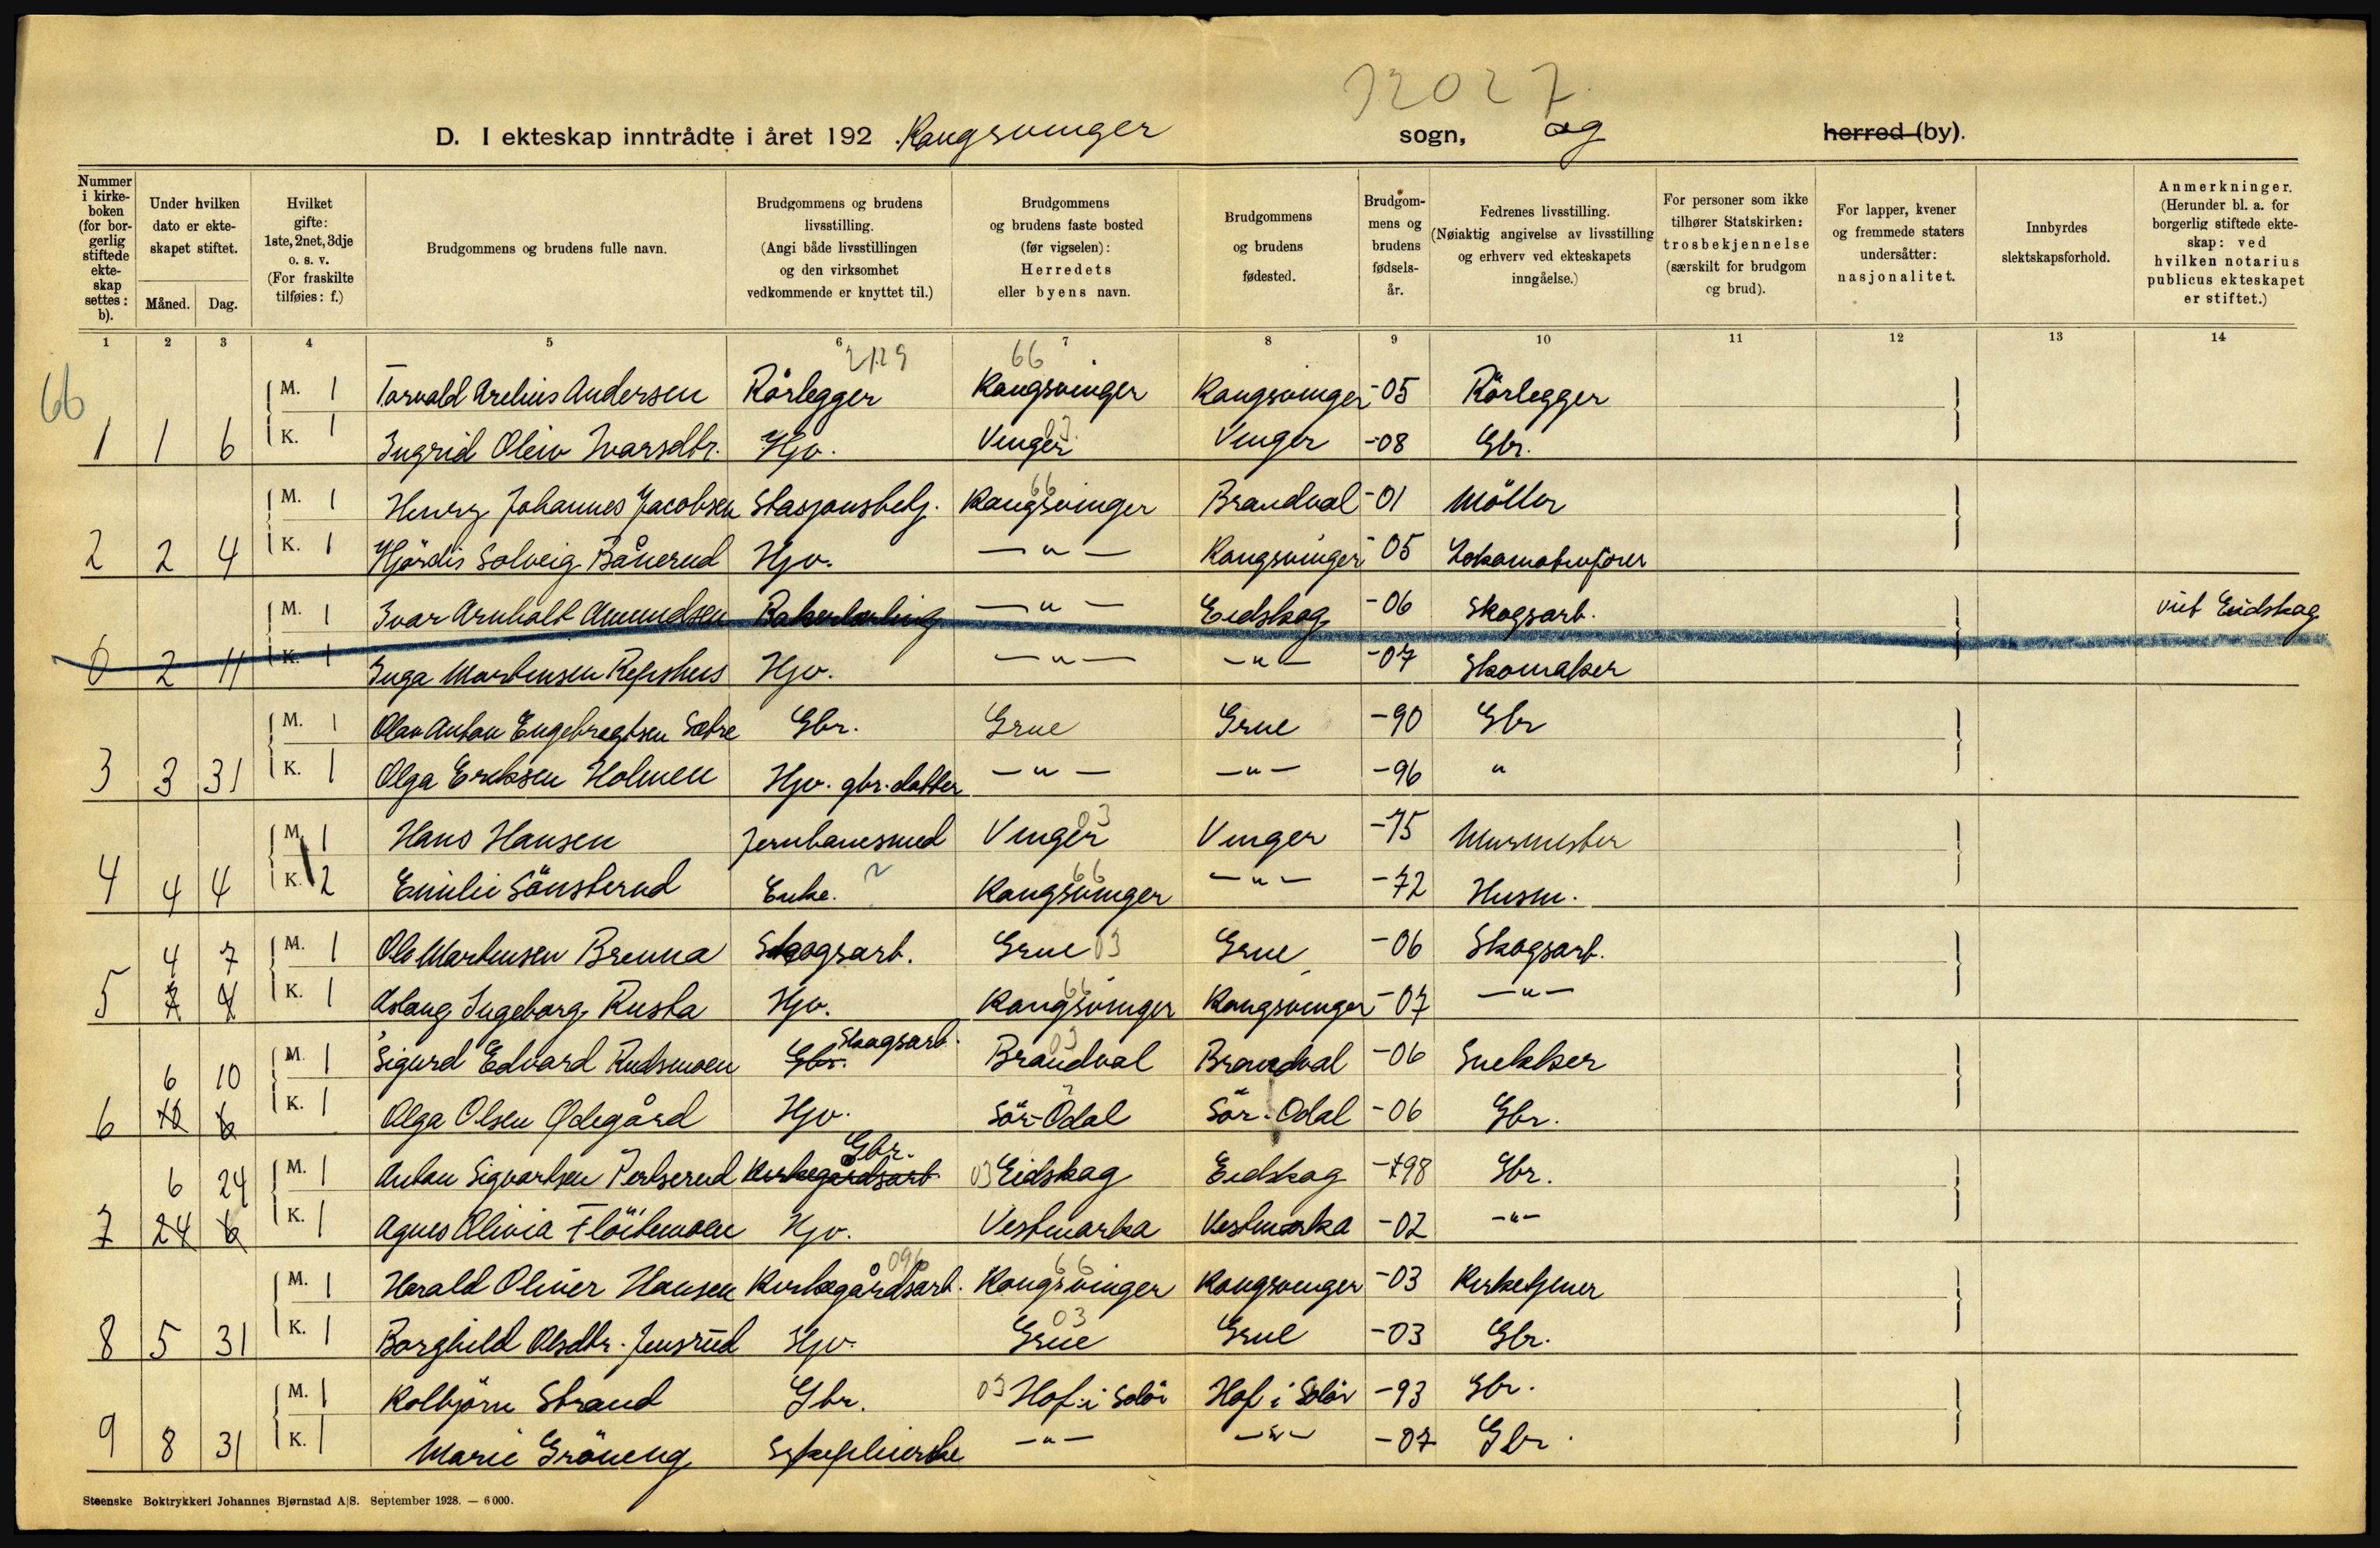 12027
D. I ekteskap inntrådte i året 192 . Kongsvinger sogn, og herred (by).
Nummer i kirke-boken (for bor-gerlig stiftede ekte-skap settes: b).
Under hvilken dato er ekte-skapet stiftet.
Måned. Dag.
Hvilket gifte: 1ste, 2net, 3dje o. s. v. (For fraskilte tilføies: f.)
Brudgommens og brudens fulle navn.
Brudgommens og brudens livsstilling. (Angi både livsstillingen og den virksomhet vedkommende er knyttet til.)
Brudgommens og brudens faste bosted (før vigselen): Herredets eller byens navn.
Brudgommens og brudens fødested.
Brudgom-mens og brudens fødsels-år.
Fedrenes livsstilling. (Nøiaktig angivelse av livsstilling og erhverv ved ekteskapets inngåelse.)
For personer som ikke tilhører Statskirken: trosbekjennelse (særskilt for brudgom og brud).
For lapper, kvener og fremmede staters undersåtter: nasjonalitet.
Innbyrdes slektskapsforhold.
Anmerkninger. (Herunder bl. a. for borgerlig stiftede ekte-skap: ved hvilken notarius publicus ekteskapet er stiftet.)
1 2 3 4 5 6 7 8 9 10 11 12 13 14
66 2129 66
M. 1 Torvald Arelius Andersen Rörlegger Kongsvinger Kongsvinger -05 Rörlegger
1 1 6 K. 1 Ingrid Oleiv Ivarsdtr. Hjv. Vinger 03 Vinger -08 Gbr.
M. 1 Henry Johannes Jacobsen Stasjonsbetj. Kongsvinger 66 Brandval -01 Möller
2 2 4 K. 1 Hjördis Solveig Bånerud Hjv. —"— Kongsvinger -05 Lokomotivförer
M. 1 Ivar Arnholt Amundsen Bakerlærling —"— Eidskog -06 Skogsarb. viet Eidskog
0 2 11 K. 1 Inga Martinsen Repshus Hjv. —"— —"— -07 Skomaker
M. 1 Olav Anton Engebregtsen Sætre Gbr. Grue Grue -90 Gbr
3 3 31 K. 1 Olga Eriksen Holmen Hjv. gbr. datter —"— —"— -96 "
M. 1 Hans Hansen Jernbanesmed Vinger 03 Vinger -75 Murmester
4 4 4 K. 2 Emilie Sönsterud Enke. ? Kongsvinger 66 —"— -72 Husm.
4 7 M. 1 Ole Martinsen Brenna Skogsarb. Grue 03 Grue -06 Skogsarb.
5 7 4 K. 1 Aslaug Ingeborg Rusta Hjv. Kongsvinger 66 Kongsvinger -07 —"—
6 10 M. 1 Sigurd Edvard Rudsmoen Gbr. Skogsarb. Brandval 03 Brandval -06 Snekker
6 10 6 K. 1 Olga Olsen Ødegård Hjv. Sör-Odal Sör-Odal -06 Gbr.
6 24 M. 1 Anton Sigvartsen Perlserud Kirkegårdsarb Gbr. 03 Eidskog Eidskog -98 Gbr.
7 24 6 K. 1 Agnes Olivia Flöitemoen Hjv. Vestmarka Vestmarka -02 —"—
M. 1 Harald Oliver Hansen Kirkegårdsarb. 096 Kongsvinger 66 Kongsvinger -03 Kirketjener
8 5 31 K. 1 Borghild Olsdtr. Jensrud Hjv. Grue 03 Grue -03 Gbr.
M. 1 Kolbjörn Strand Gbr. 03 Hof i Solör Hof i Solör -93 Gbr.
9 8 31 K. 1 Marie Gröneng Sykepleierske —"— —"— -07 Gbr.
Steenske Boktrykkeri Johannes Bjørnstad A|S. September 1928. — 6000.